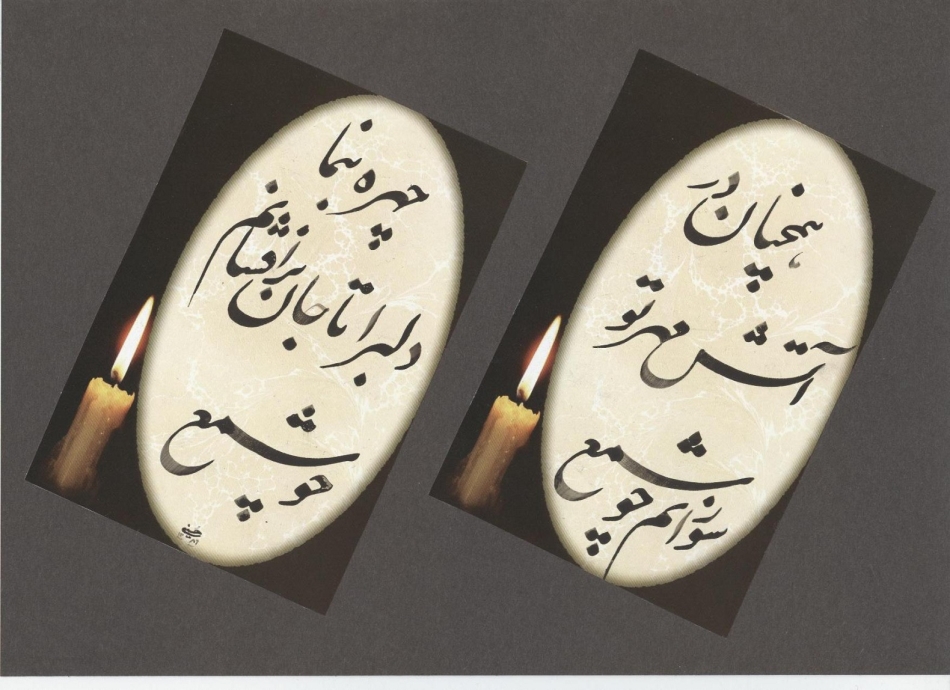 همچنان در
آتش مهر تو
سوزانم چو شمع
چهره بنما
دلبرا تا جان برافشانم
چو شمع